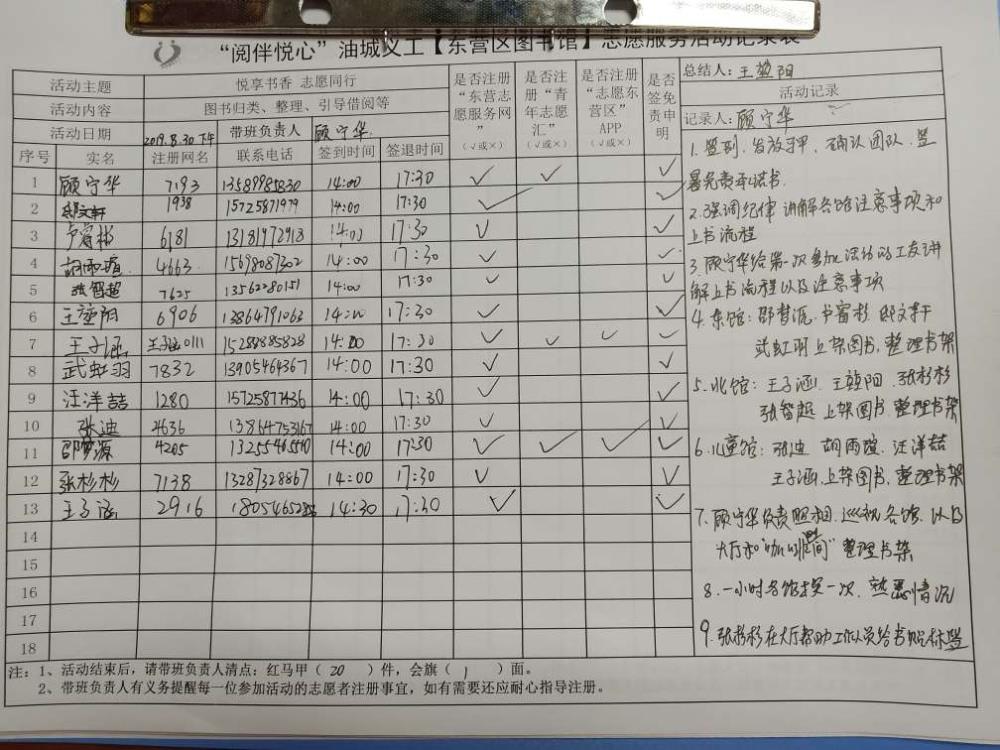 “阅伴悦心”油城义工【东营区图书馆】志愿服务活动记录表
活动主题 悦享书香 志愿同行
活动内容 图书归类、整理、引导借阅等
活动日期 2019.8.30下午 带班负责人 顾守华
是否注册“东营志愿服务网”（√或×） 是否注册“青年志愿汇”（√或×） 是否注册“志愿东营区”APP（√或×） 是否签免责申明
总结人：王堃阳
活动记录
记录人：顾守华
序号 实名 注册网名 联系电话 签到时间 签退时间
1 顾守华 7193 13589985830 14:00 17:30 √ √ √
2 邸文轩 1938 15725871979 14:00 17:30 √ √
3 卢睿彬 6181 13181972918 14:00 17:30 √ √
4 胡雨瑄 4663 15698087302 14:00 17:30 √ √
5 张智超 7625 13562280151 14:00 17:30 √ √
6 王堃阳 6906 13864791063 14:00 17:30 √ √
7 王子涵 王子涵0111 15288885828 14:00 17:30 √ √ √ √
8 武虹羽 7832 13905464367 14:00 17:30 √ √
9 汪洋喆 1280 15725877436 14:00 17:30 √ √
10 张迪 2636 13864753167 14:00 17:30 √ √
11 邵梦源 4205 14:00 17:30 √ √ √ √
12 张杉杉 7138 13287328867 14:00 17:30 √ √
13 王子涵 2916 14:30 17:30 √ √
14
15
16
17
18
1、签到、发放马甲、确认团队、签
署免责承诺书.
2、强调纪律 讲解各馆注意事项和
上书流程
3、顾守华给第一次参加活动的工友讲
解上书流程以及注意事项
4、东馆：邵梦源、卢睿彬、邸文轩
武虹羽上架图书、整理书架
5、北馆：王子涵、王堃阳、张杉杉
张智超 上架图书 整理书架
6、儿童馆：张迪 胡雨瑄、汪洋喆
王子涵，上架图书，整理书架
7、顾守华负责照相、巡视各馆、以及
大厅和 整理书架
8、一小时各馆换一次、熟悉情况
9、张杉杉在大厅帮助工作人员给书贴标签
注：1、活动结束后，请带班负责人清点：红马甲（20）件，会旗（1）面。
2、带班负责人有义务提醒每一位参加活动的志愿者注册事宜，如有需要还应耐心指导注册。